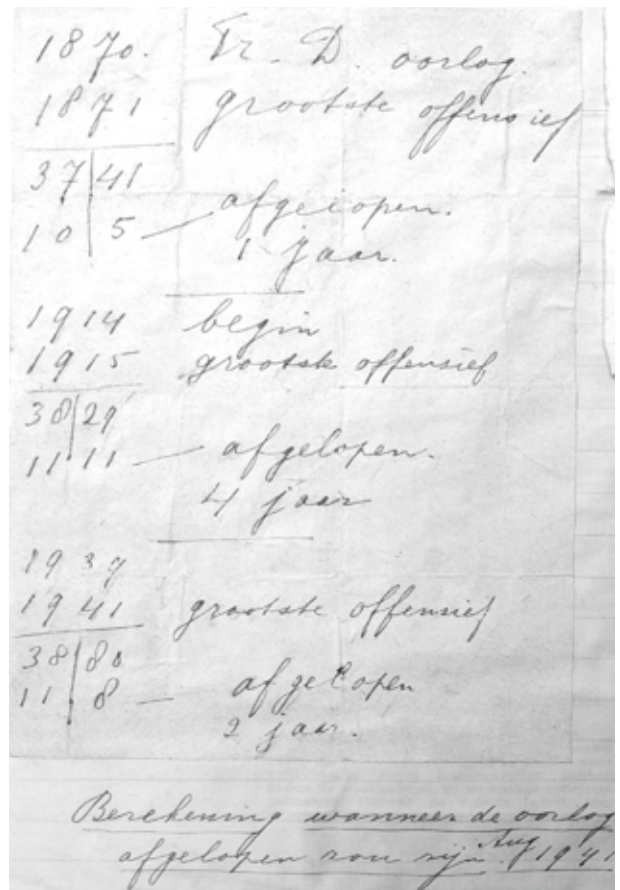 1870. Fr. D. oorlog.
1871 grootste offensief
37|41
10|5 — afgelopen.
1 jaar.
1914 begin
1915 grootste offensief
38|29
11|11 — afgelopen.
4 jaar
1937
1941 grootste offensief
38|80
11|8 — afgelopen
2 jaar.
Berekening wanneer de oorlog
afgelopen zou zijn. Aug 1941